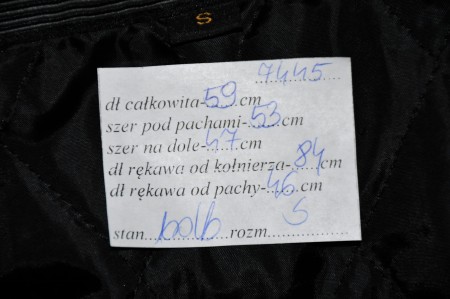 S
7445
dł całkowita-59cm
szer pod pachami-53cm
szer na dole-47cm
dł rękawa od kołnierza-84cm
dł rękawa od pachy-46cm
S
stan bdb rozm